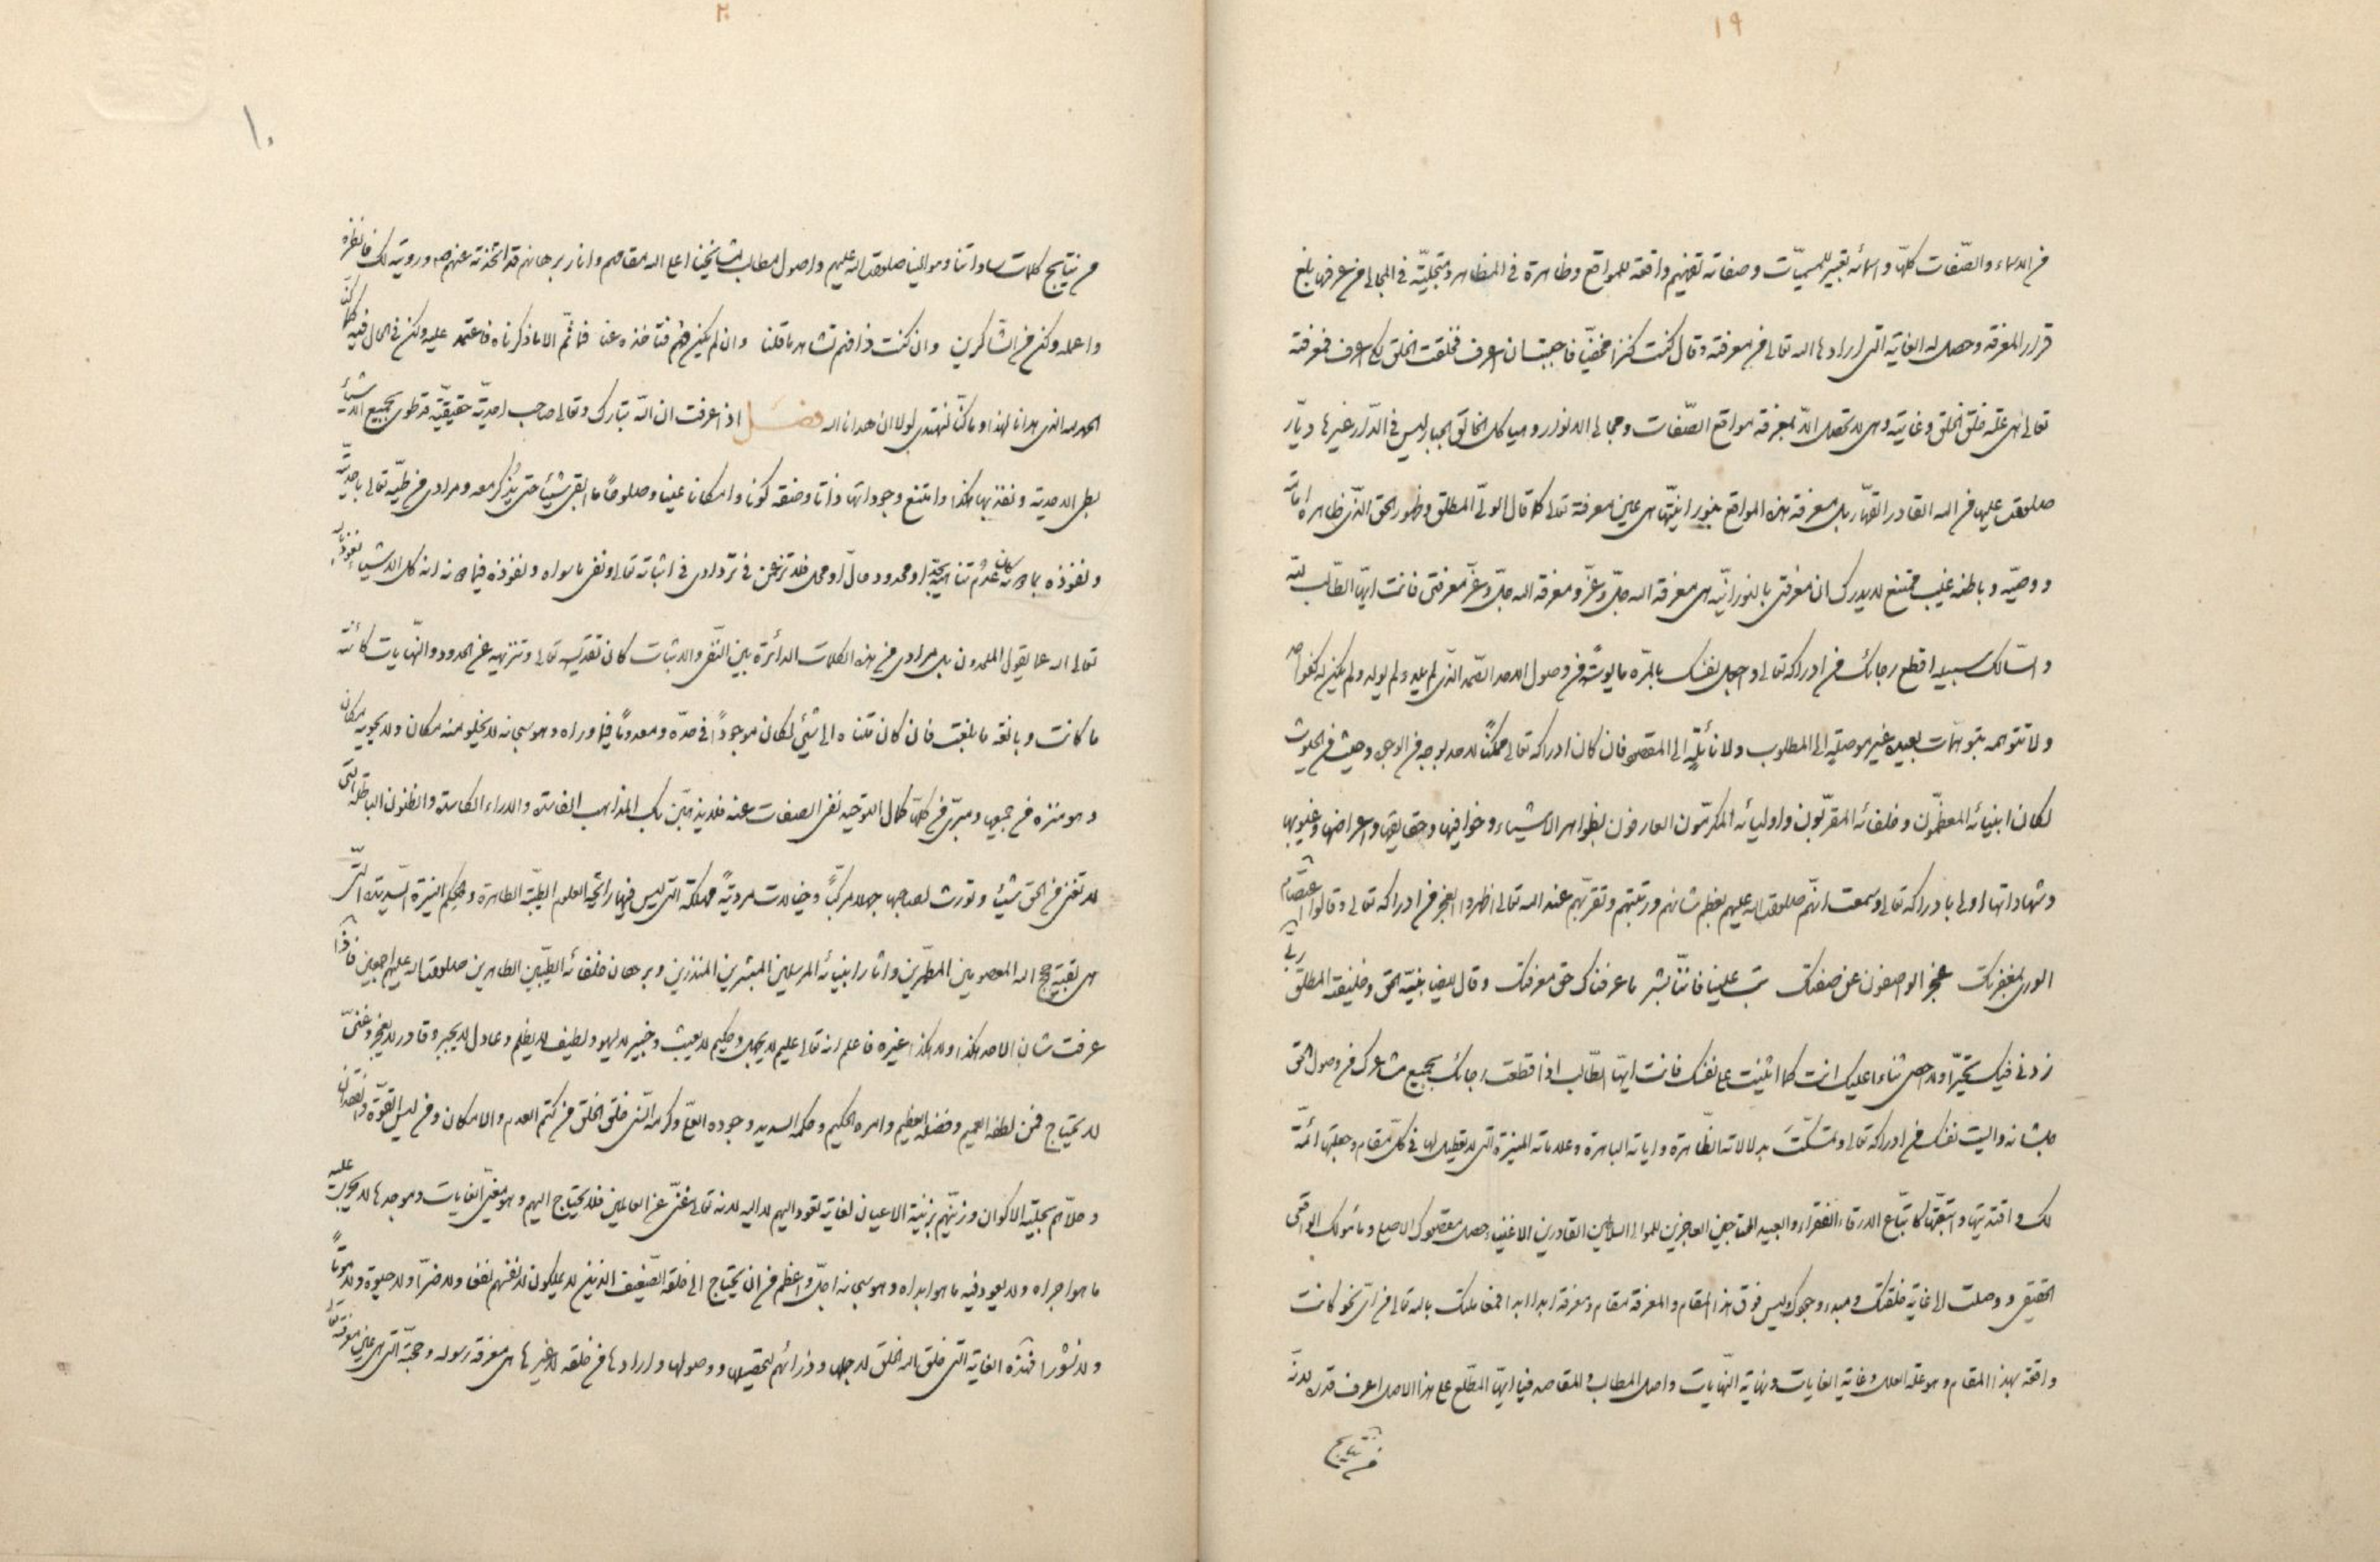 ١٩
من الاسماء والصّفات كلها واسمائه تعبير للمسميّات وصفاته تفهيم واقعة للمواقع وظاهرة فى المظاهر ومتجليّة فى المجالى من عرفها بلغ
قرار المعرفة وحصل له الغاية التى ارادها الله تعالى من معرفته وقال كنت كنزا مخفيّا فاحببت ان اعرف فخلقت الخلق لكى اعرف فمعرفته
تعالى هى علّة خلق الخلق وغايته وهى لا تحصل الّا بمعرفة مواقع الصّفات ومجالى الانوار وهياكل الخالق الجبار ليس فى الدّار غيرها ديّار
صلوات عليها من الله القادر القهّار بل معرفة هذه المواقع بنورانيّتها هى عين معرفة الله كما قال الولىّ المطلق وظهور الحق الذّى ظاهره امامة
ووصيّه وباطنه غيب ممتنع لا يدرك ان معرفتى بالنورانيّة هى معرفة الله جلّ وعزّ ومعرفة الله جلّ وعزّ معرفتى فانت ايّها الطّالب لله
والسّالك سبيله اقطع رجائك من ادراكه تعالى واجعل نفسك بالمرّة مايوسًا من وصول الاحد الصّمد الذّى لم يلد ولم يولد ولم يكن له كفوا احد
ولا تتوهمه بتوهمات بعيدة غير موصلة الى المطلوب ولا نائلة الى المقصود فان كان ادراكه تعالى ممكنًا لاحد بوجه من الوجوه وحيث من الحيوث
لكان انبيائه المعظمّون وخلفائه المقرّبون واوليائه المكرمّون العارفون بظواهر الاشياء وخوافيها وحقايقها واعراضها وغيوبها
وشهاداتها اولى بادراكه تعالى وسمعت انّهم صلوات الله عليهم بعظم شانهم ورتبتهم وتقرّبهم عند الله تعالى اظهروا العجز من ادراكه تعالى وقالوا اعتصام
الورى بمغفرتك عجز الواصفون عن صفتك تب علينا فانّنا بشر ما عرفناك حق معرفتك وقال ايضا نبيّه الحق وخليفته المطلق ربّ
زدنى فيك تحيّرا ولا احصى ثناءا عليك انت كما اثنيت على نفسك فانت ايّها الطّالب اذا قطعت رجائك بجميع مشاعرك من وصول الحق
جلّ شانه وآيست نفسك من ادراكه تعالى وتمسّكت بدلالاته الظّاهرة واياته الباهرة وعلاماته المنيرة التى لا تعطيل لها فى كلّ مقام وجعلتها ائمّة
لك واقتديتها واتبعّتها كاتّباع الارقاء الفقراء والعبيد المحتاجين العاجزين للموالى السلاطين القادرين الاغنياء حصل مقصودك الاصلى ومأمولك الواقعى
الحقيقى ووصلت الى غاية خلقتك ومبدء وجودك وليس فوق هذا المقام والمعرفة مقام ومعرفة ابدا ابدا فمعاملتك بالله تعالى من اىّ نحو كانت
واقعة بهذا المقام وهو علّة العلل وغاية الغايات ونهاية النّهايات واصل المطالب والمقاصد فيا ايّها المطّلع على هذا الاصل اعرف قدره لانّه
من نتايج
٢٠
١٠
من نتايج كلمات ساداتنا وموالينا صلوات الله عليهم واصول مطالب مشايخنا اعلى الله مقامهم وانار برهانهم قد اتخذته عنهم ورويته لك فانظره
واعمله وكن من الشّاكرين وان كنت ذا فهم تشاهد ما قلنا وان لم يكن فهم فتأخذه عنا فما ثمّ الا ما ذكرناه فاعتمد عليه وكن فى الحال فيه كما كنّا
الحمد لله الذى هدانا لهذا وما كنّا لنهتدى لولا ان هدانا الله فصل اذا عرفت ان الله تبارك وتعالى صاحب احديّة حقيقيّة قد طوى بجميع الاشياء
بطى الاحدية ونفذ بها هكذا وامتنع وجوداتها ذاتا وصفة كونا وامكانا عينا وصلوحًا ما ابقى شيئا حتى يذكر معه ومرادى من طيّه تعالى باحديّته
ونفوذه بما عدم تناهيه بحدّ او محدود حالّ او محل فلا تزعمن فى تردادى فى اثباته تعالى ونفى ما سواه ونفوذه فيما انه كلّ الاشياء بنفوذه
تعالى الله عما يقول الملحدون بل مرادى من هذه الكلمات الدائرة بين النّفى والاثبات كان تقديسه تعالى وتنزيهه عن الحدود والنّهايات كائنة
ما كانت وبالغة ما بلغت فان كان متناه الى شىء لكان موجودًا فى حدّه ومعدومًا فيما وراه وهو سبحانه لا يخلو منه مكان ولا يحويه مكان
وهو منزه من جميعها ومبرّى من كلّها كمال التوحيد نفى الصفات عنه فلا يذهبّن بك المذاهب الفاسدة والاراء الكاسدة والظنون الباطلة التى
لا تغنى من الحق شيئا وتورث لصاحبها جهلا مركبًا وخيالات مردية مهلكة التى ليس فيها رايحة العلوم الطيبّة الطاهرة والحكم المنيرة السّديدة التّى
هى بقية حجج الله المعصومين المطهّرين واثار انبيائه المرسلين المبشرين المنذرين وبرهان خلفائه الطيّبين الطاهرين صلوات الله عليهم اجمعين فاذا
عرفت شان الاحد هكذا ولا هكذا غيره فاعلم انه تعالى عليم لا يجهل وحكيم لا يعبث وخبير لا يلهو ولطيف لا يظلم وعادل لا يجبر وقادر لا يعجز وغنىّ
لا يحتاج فمن لطفه العميم وفضله العظيم وامره الحكيم وحكمه السديد وجوده العلىّ وكرمه السّنى خلق الخلق من كتم العدم والامكان ومن ليس القوّة والفقدان
وحلّاهم بحلية الاكوان وزيّنهم بزينة الاعيان لغاية تعود اليهم لا اليه لانه تعالى غنىّ عن العالمين فلا يحتاج اليهم وهو مغيّى الغايات وموجدها لا يجرى عليه
ما هو اجراه ولا يعود فيه ما هو ابداه وهو سبحانه اجلّ واعظم من ان يحتاج الى خلقه الضّعيف الذين لا يملكون لانفسهم نفعا ولا ضرّا ولا حيوة ولا موتًا
ولا نشورا فهذه الغاية التى خلق الله الخلق لاجلها وذرائهم لتحصيلها ووصولها وارادها من خلقه لا غيرها هى معرفة رسوله وحججه التى هى عين معرفته تعالى